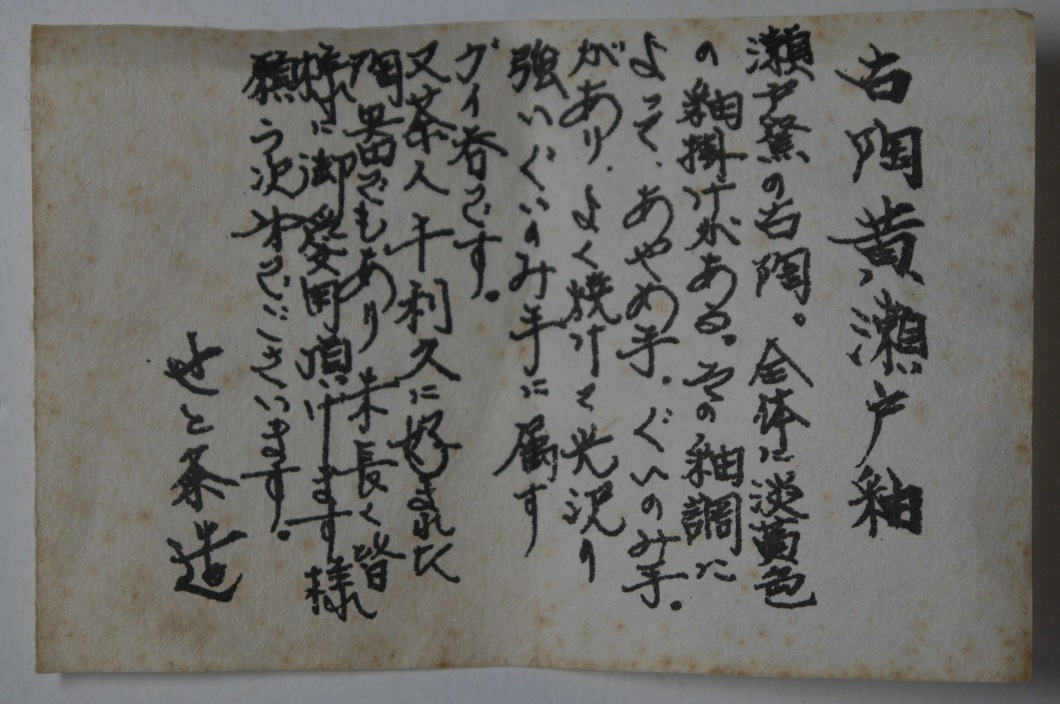 古陶黄瀬戸釉
瀬戸窯の古陶。全体に淡黄色
の釉掛けがある。その釉調に
よって、あやめ手。ぐいのみ手。
があり、よく焼けて光沢の
強いぐいのみ手に属す
グイ呑です。
又茶人千利久に好まれた
陶器でもあり末長く皆
様に御愛用頂けます様
願う次第でございます。
せと茶造